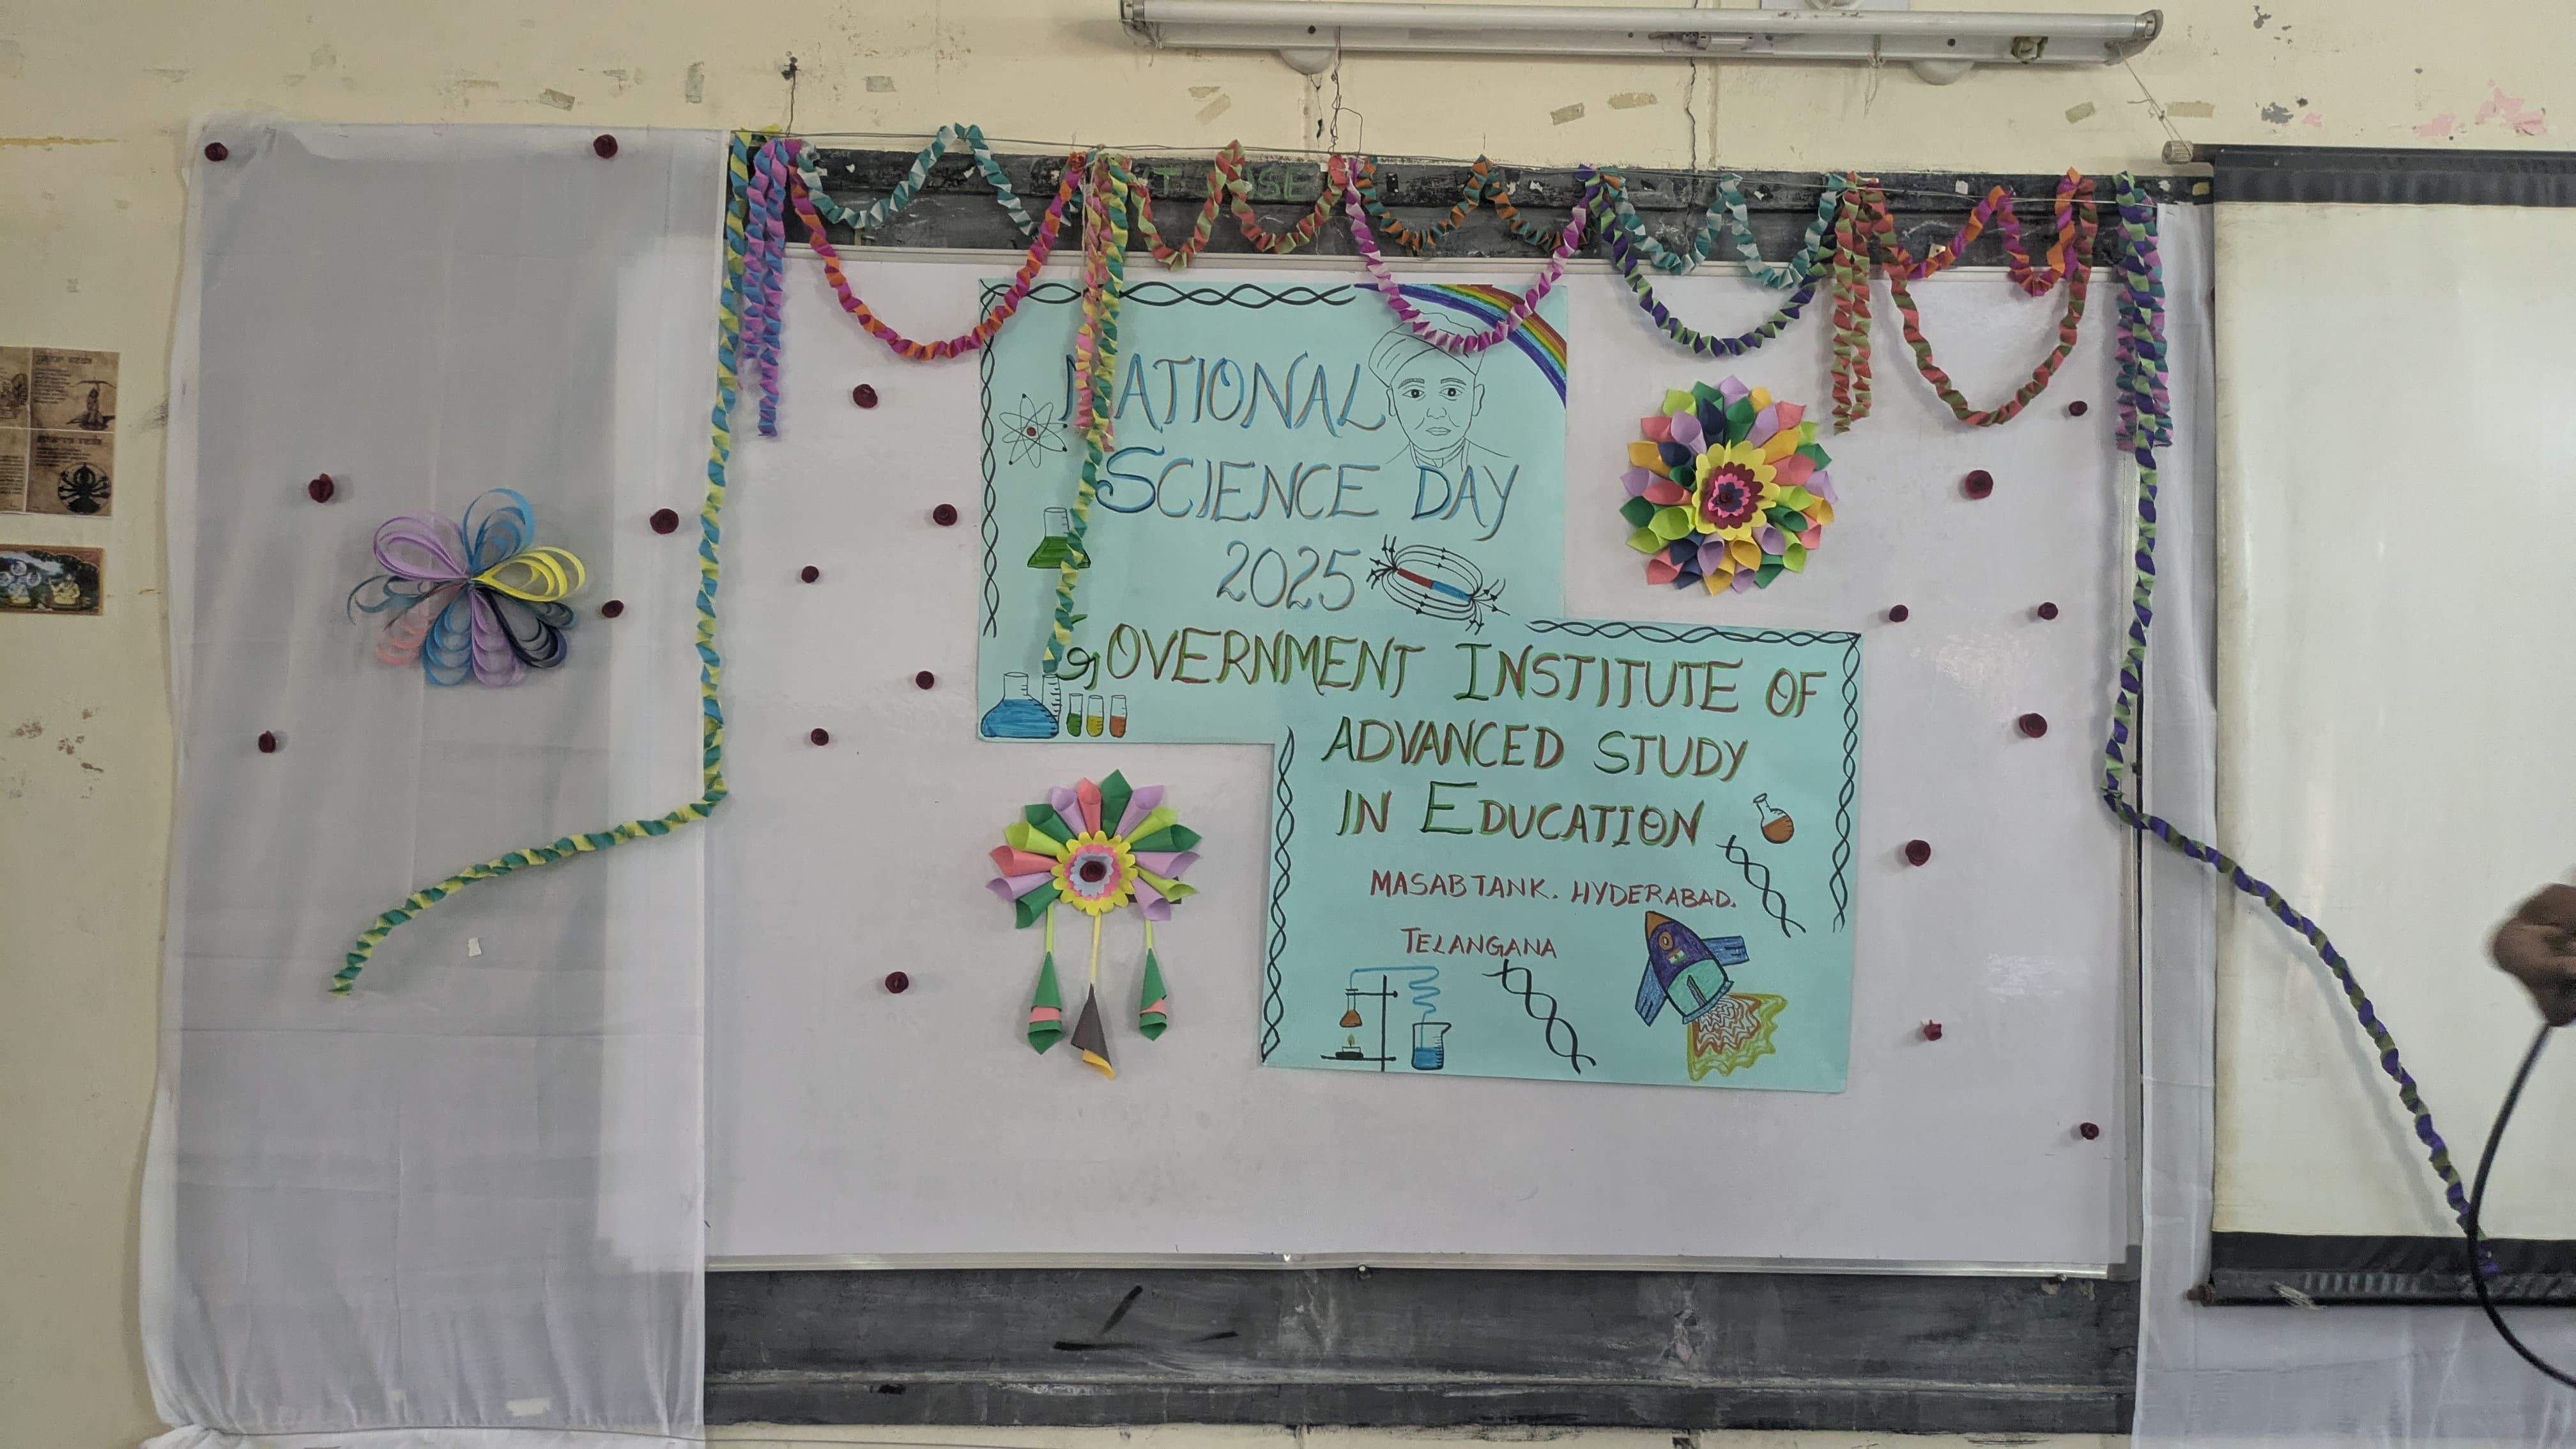 NATIONAL
SCIENCE DAY
2025
GOVERNMENT INSTITUTE OF
ADVANCED STUDY
IN EDUCATION
MASAB TANK. HYDERABAD.
TELANGANA